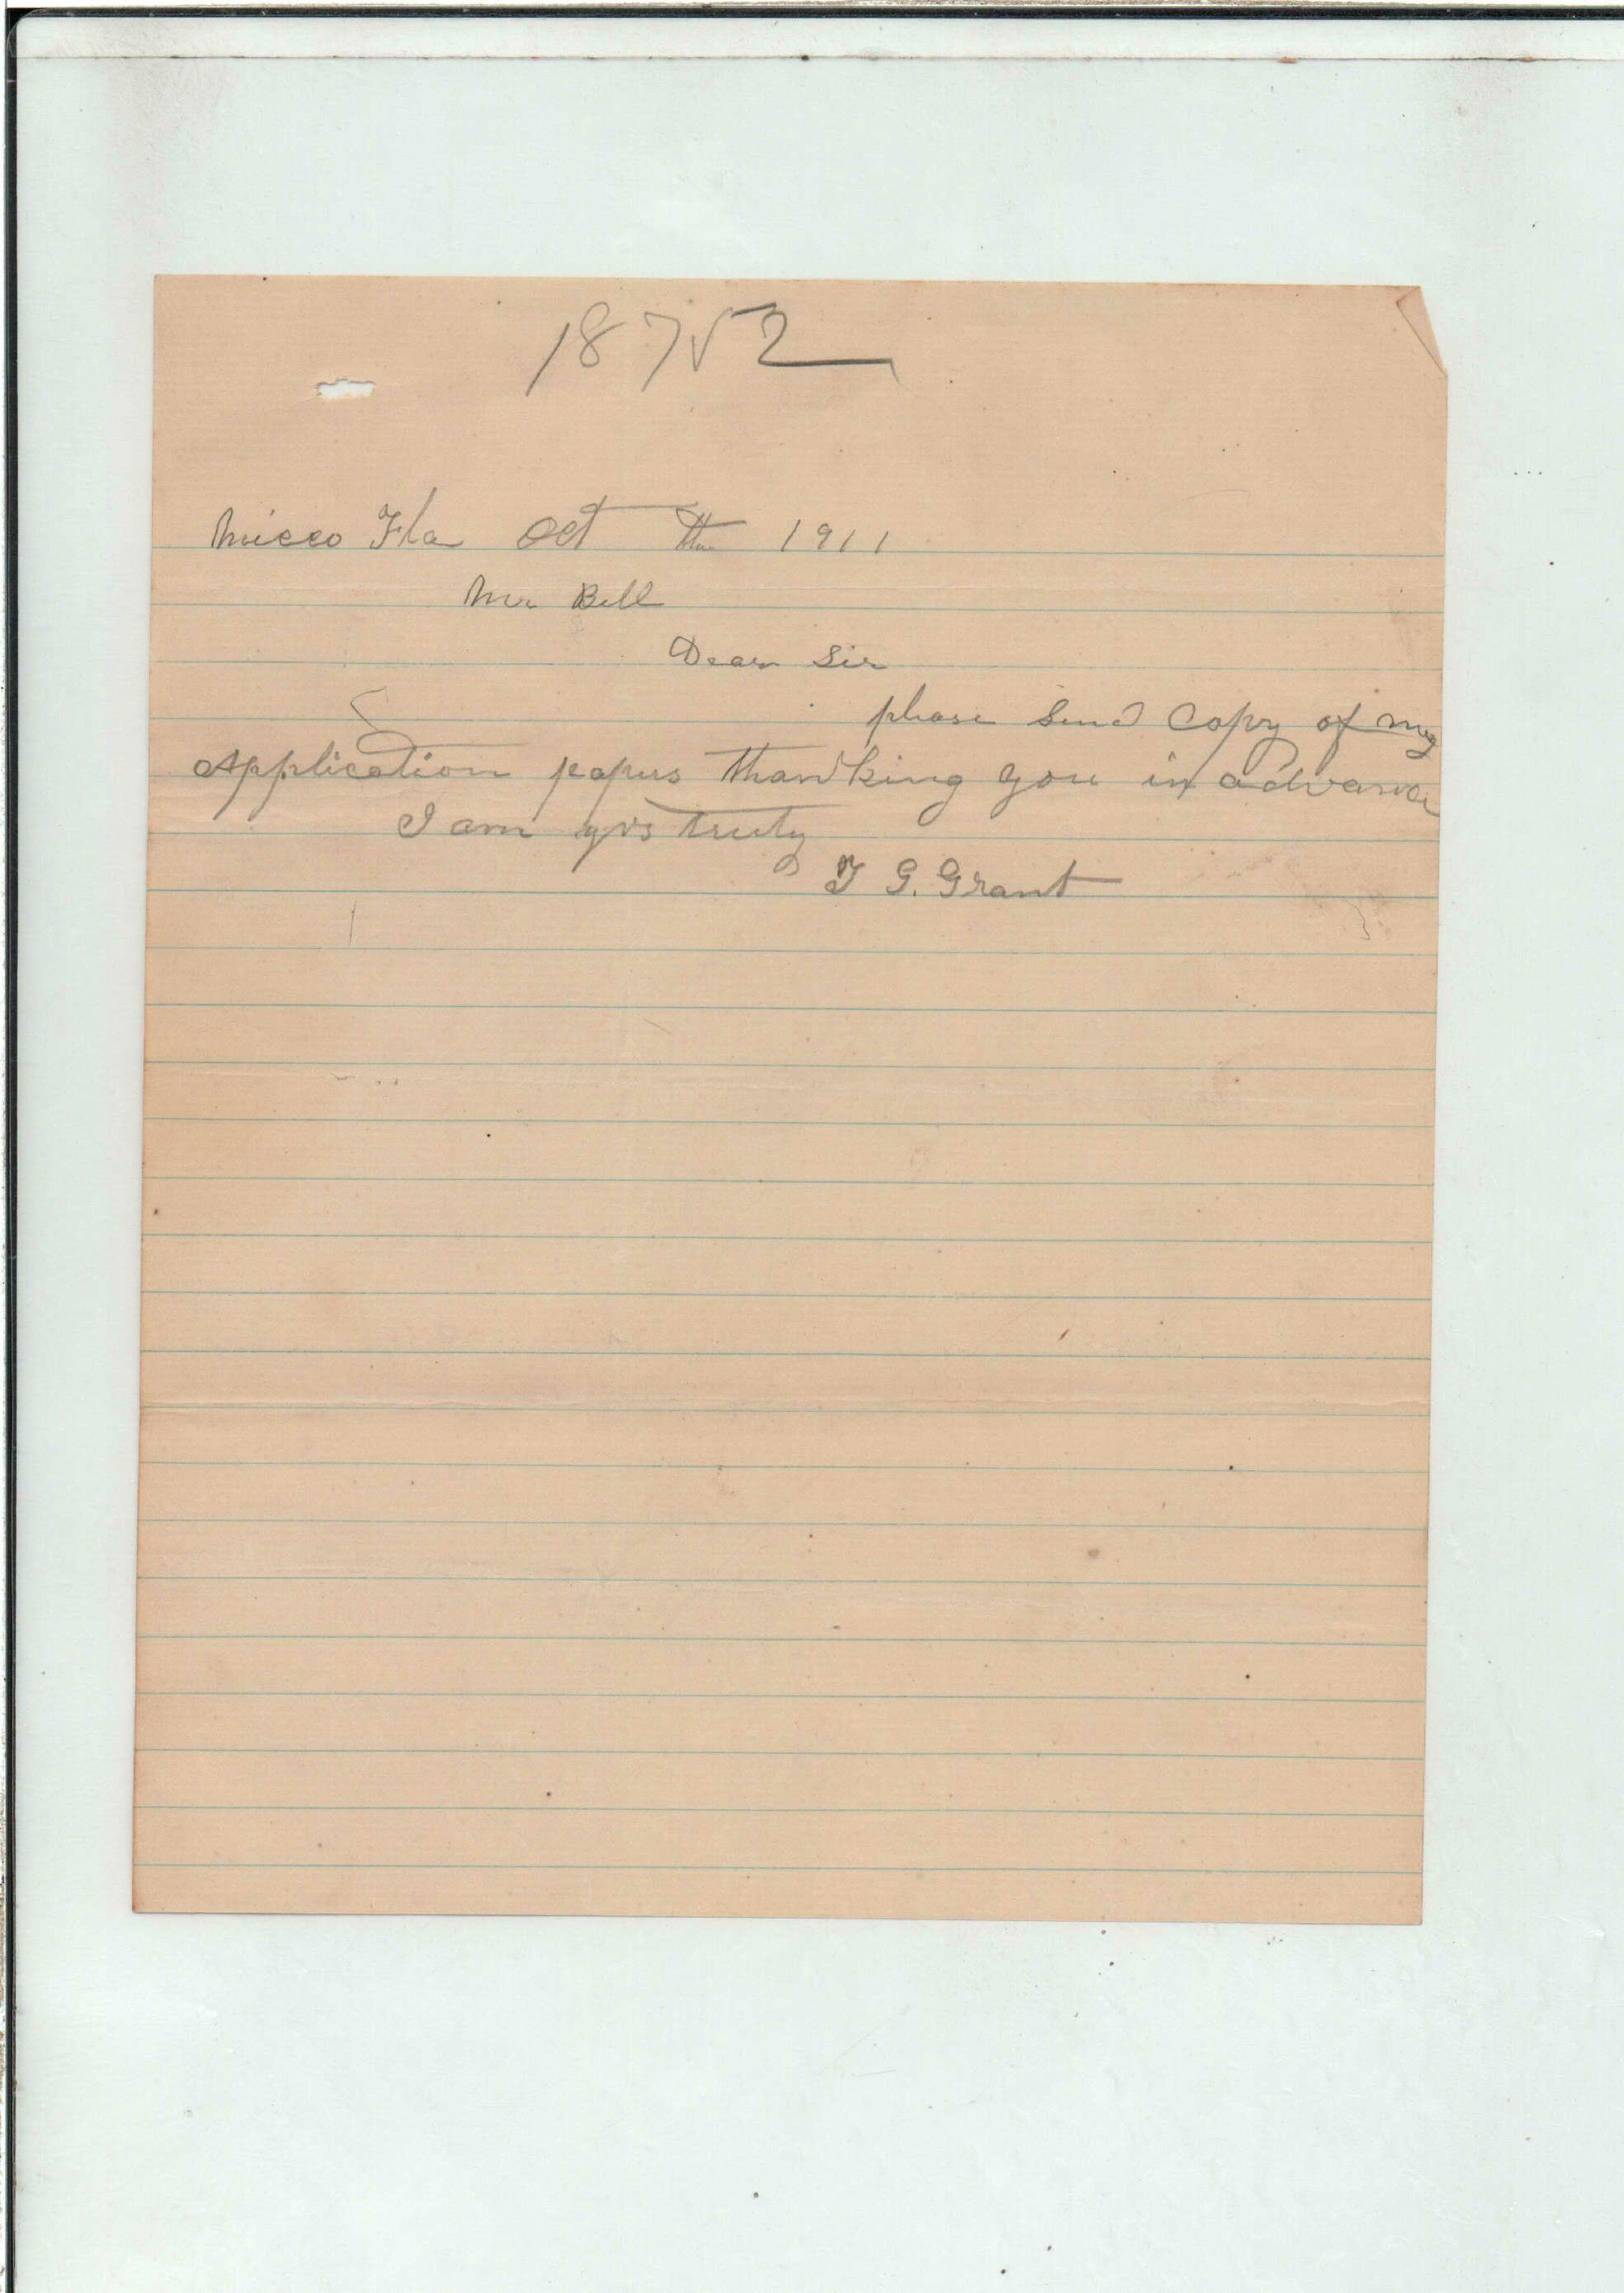 18752
Micco Fla Oct th 1911
Mr Bell
Dear Sir
please send Copy of my
Application papers thanking you in advance
I am yrs truly
T G. Grant